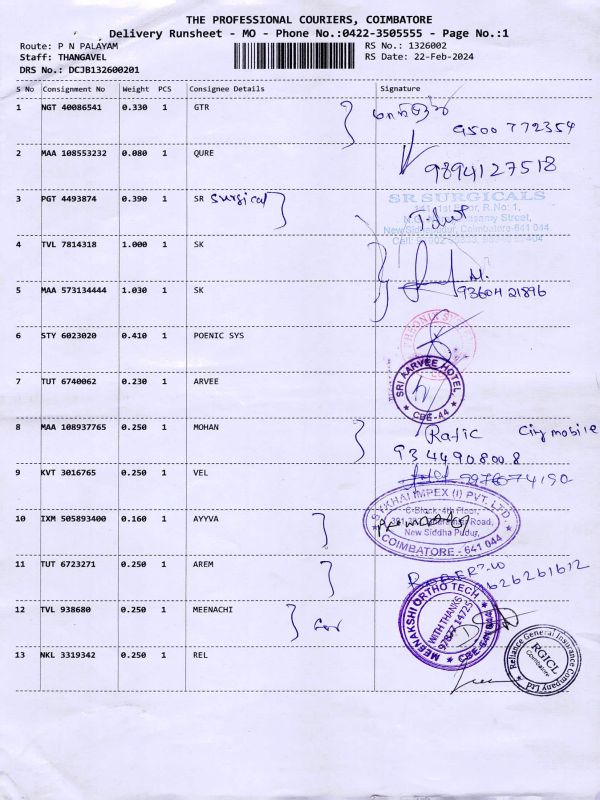 THE PROFESSIONAL COURIERS, COIMBATORE
Delivery Runsheet - MO - Phone No.:0422-3505555 - Page No.:1
Route: P N PALAYAM RS No.: 1326002
Staff: THANGAVEL RS Date: 22-Feb-2024
DRS No.: DCJB132600201
S No Consignment No Weight PCS Consignee Details Signature
1 NGT 40086541 0.330 1 GTR
9500 772354
2 MAA 108553232 0.080 1 QURE 9894127518
3 PGT 4493874 0.390 1 SR Surgical SR SURGICALS
New Siddapudur, Coimbatore-641 044
4 TVL 7814318 1.000 1 SK
5 MAA 573134444 1.030 1 SK 9360421896
6 STY 6023020 0.410 1 POENIC SYS
7 TUT 6740062 0.230 1 ARVEE SRI AARVEE HOTEL CBE-44
8 MAA 108937765 0.250 1 MOHAN Rafic City mobile
9344908008
9 KVT 3016765 0.250 1 VEL
10 IXM 505893400 0.160 1 AYYVA IMPEX (I) PVT. LTD.
C-Block, 4th Floor,
New Siddha Pudur,
COIMBATORE - 641 044
11 TUT 6723271 0.250 1 AREM
9626261612
12 TVL 938680 0.250 1 MEENACHI MEENAKSHI ORTHO TECH
WITH THANKS
13 NKL 3319342 0.250 1 REL Reliance General Insurance Company Ltd
RGICL
Coimbatore